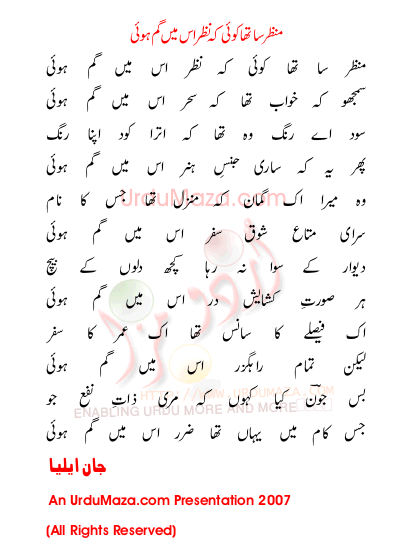 منظر سا تھا کوئی کہ نظر اس میں گم ہوئی
منظر سا تھا کوئی کہ نظر اس میں گم ہوئی
سمجھو کہ خواب تھا کہ سحر اس میں گم ہوئی
سود اے رنگ وہ تھا کہ اترا کود اپنا رنگ
پھر یہ کہ ساری جنسِ ہنر اس میں گم ہوئی
وہ میرا اک گمان کہ منزل تھا جس کا نام
سرای متاع شوق سفر اس میں گم ہوئی
دیوار کے سوا نہ رہا کچھ دلوں کے بیچ
ہر صورتِ کشایش در اس میں گم ہوئی
اک فیصلے کا سانس تھا اک عمر کا سفر
لیکن تمام راہگزر اس میں گم ہوئی
بس جونؔ کیا کہوں کہ مری ذات نفع جو
جس کام میں یہاں تھا ضرر اس میں گم ہوئی
جان ایلیا
An UrduMaza.com Presentation 2007
(All Rights Reserved)
UrduMaza.com
اردو مزا
HTTP://WWW.URDUMAZA.COM
ENABLING URDU MORE AND MORE...